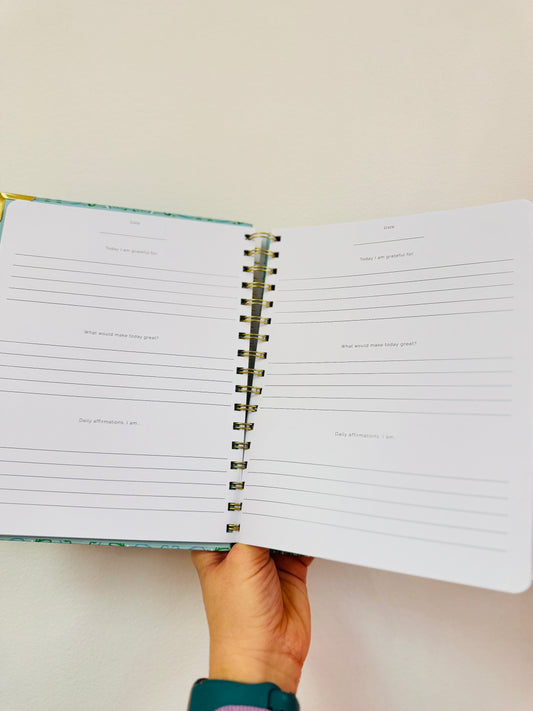 Date
Today I am grateful for:
What would make today great?
Daily affirmations. I am.
Date
Today I am grateful for:
What would make today great?
Daily affirmations. I am.